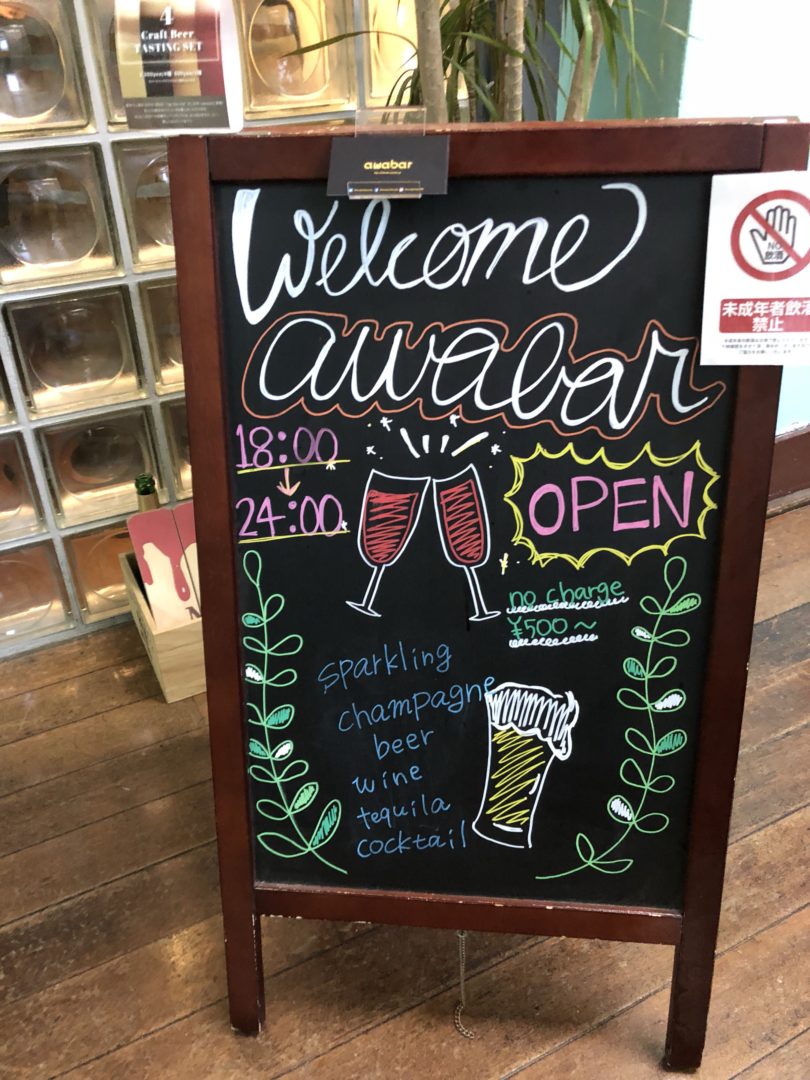 4
Craft Beer
TASTING SET
awabar
Welcome
awabar
18:00
24:00
OPEN
no charge
¥500~
sparkling
champagne
beer
wine
tequila
cocktail
NO
飲酒
未成年者飲酒
禁止